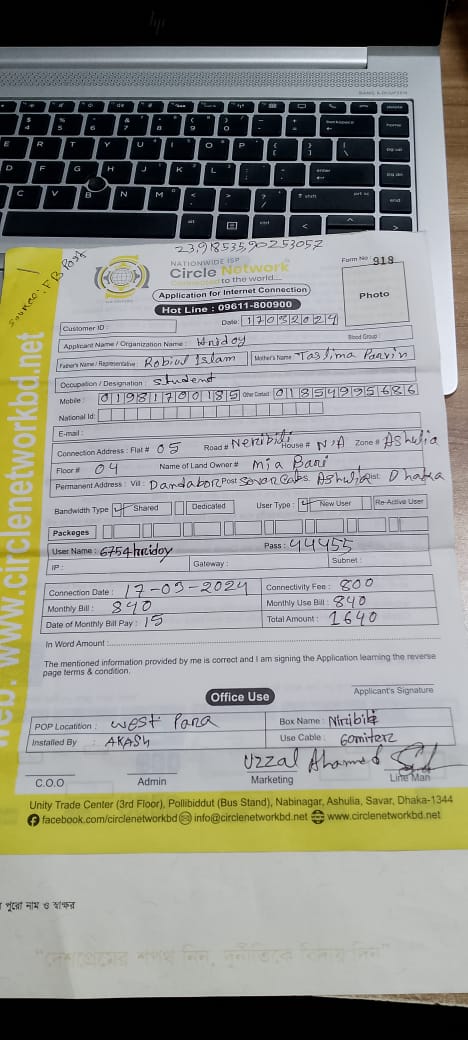 23.918535,90.253057
Source: F.B Post
NATIONWIDE ISP
Circle Network
Connected to the world...
Form No 918
Application for Internet Connection)
Hot Line : 09611-800900
Photo
Date: 17032024
Customer ID :
Applicant Name / Organization Name : Hridoy
Blood Group :
Father's Name / Representative : Robiul Islam Mother's Name : Taslima Parvin
Occupation / Designation : Student
Mobile : 01981700185 Other Contact 01854995686
National Id:
E-mail :
Connection Address : Flat # 05 Road # Neribili House # N/A Zone # Ashulia
Floor # 04 Name of Land Owner # Mia Bari
Permanent Address : Vill : Dandabor Post Savar Ashulia Dist: Dhaka
Bandwidth Type Shared Dedicated User Type : New User Re-Active User
Packeges
User Name : 6754hridoy Pass : 44455
IP : Gateway : Subnet :
Connection Date : 17-03-2024 Connectivity Fee : 800
Monthly Bill : 840 Monthly Use Bill : 840
Date of Monthly Bill Pay : 15 Total Amount : 1640
In Word Amount :
The mentioned information provided by me is correct and I am signing the Application learning the reverse
page terms & condition.
Applicant's Signature
Office Use
POP Locatition : West Para Box Name : Niribili
Installed By : AKASH Use Cable : 60miterz
Uzzal Ahamed
C.O.O Admin Marketing Line Man
Unity Trade Center (3rd Floor), Pollibiddut (Bus Stand), Nabinagar, Ashulia, Savar, Dhaka-1344
facebook.com/circlenetworkbd info@circlenetworkbd.net www.circlenetworkbd.net
web: www.circlenetworkbd.net
পুরো নাম ও স্বাক্ষর
"দেশপ্রেমের শপথ নিন, দুর্নীতিকে বিদায় দিন"